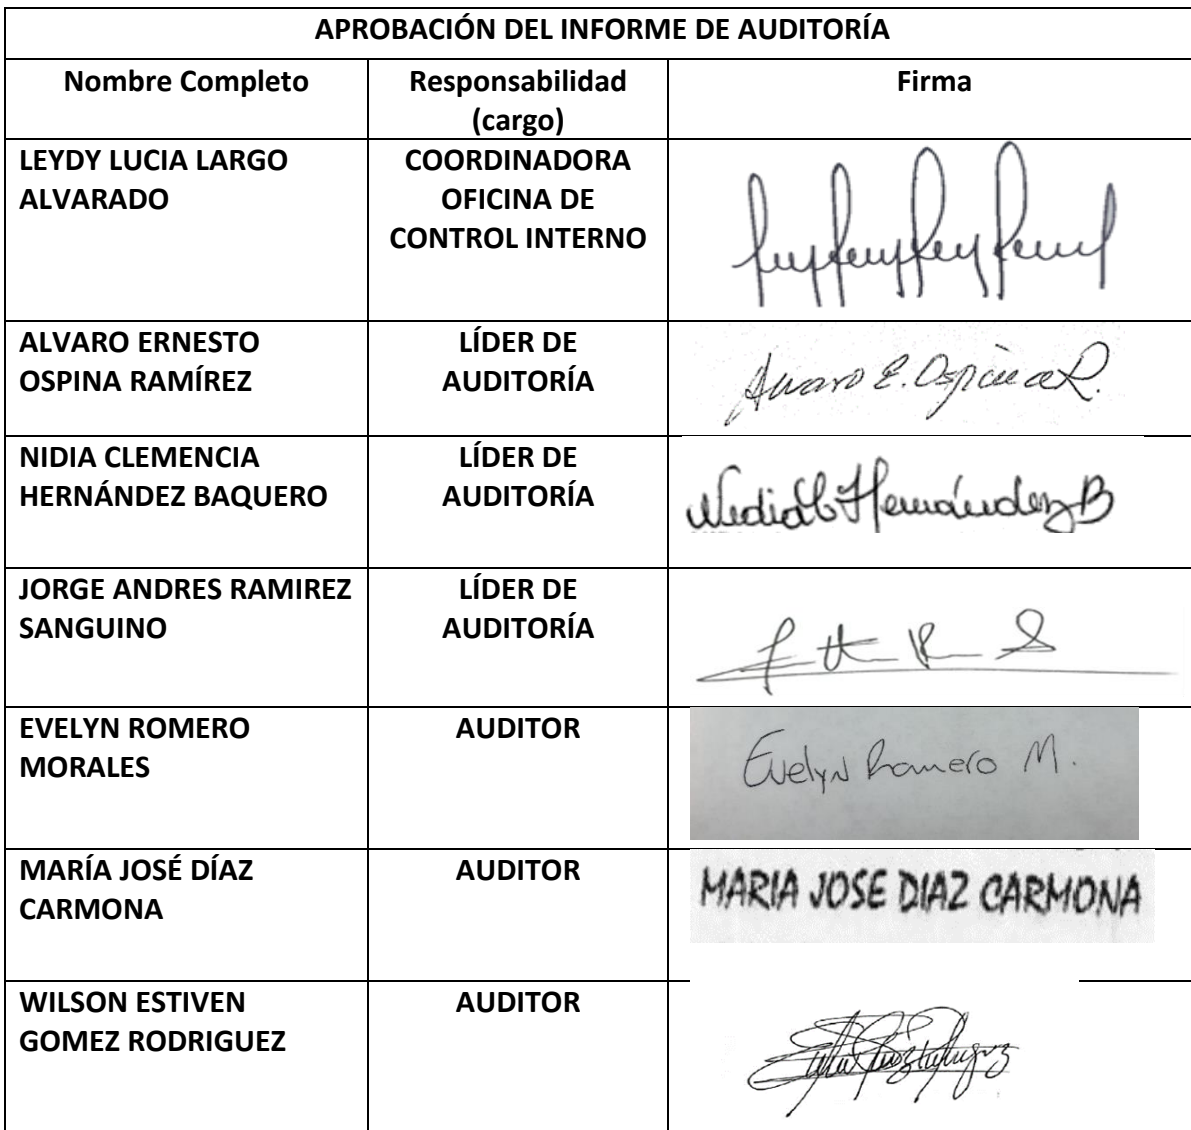 APROBACIÓN DEL INFORME DE AUDITORÍA
Nombre Completo
Responsabilidad
(cargo)
Firma
LEYDY LUCIA LARGO
ALVARADO
COORDINADORA
OFICINA DE
CONTROL INTERNO
ALVARO ERNESTO
OSPINA RAMÍREZ
LÍDER DE
AUDITORÍA
Alvaro E. Ospina R.
NIDIA CLEMENCIA
HERNÁNDEZ BAQUERO
LÍDER DE
AUDITORÍA
Hernández B
JORGE ANDRES RAMIREZ
SANGUINO
LÍDER DE
AUDITORÍA
EVELYN ROMERO
MORALES
AUDITOR
Evelyn Romero M.
MARÍA JOSÉ DÍAZ
CARMONA
AUDITOR
MARIA JOSE DIAZ CARMONA
WILSON ESTIVEN
GOMEZ RODRIGUEZ
AUDITOR